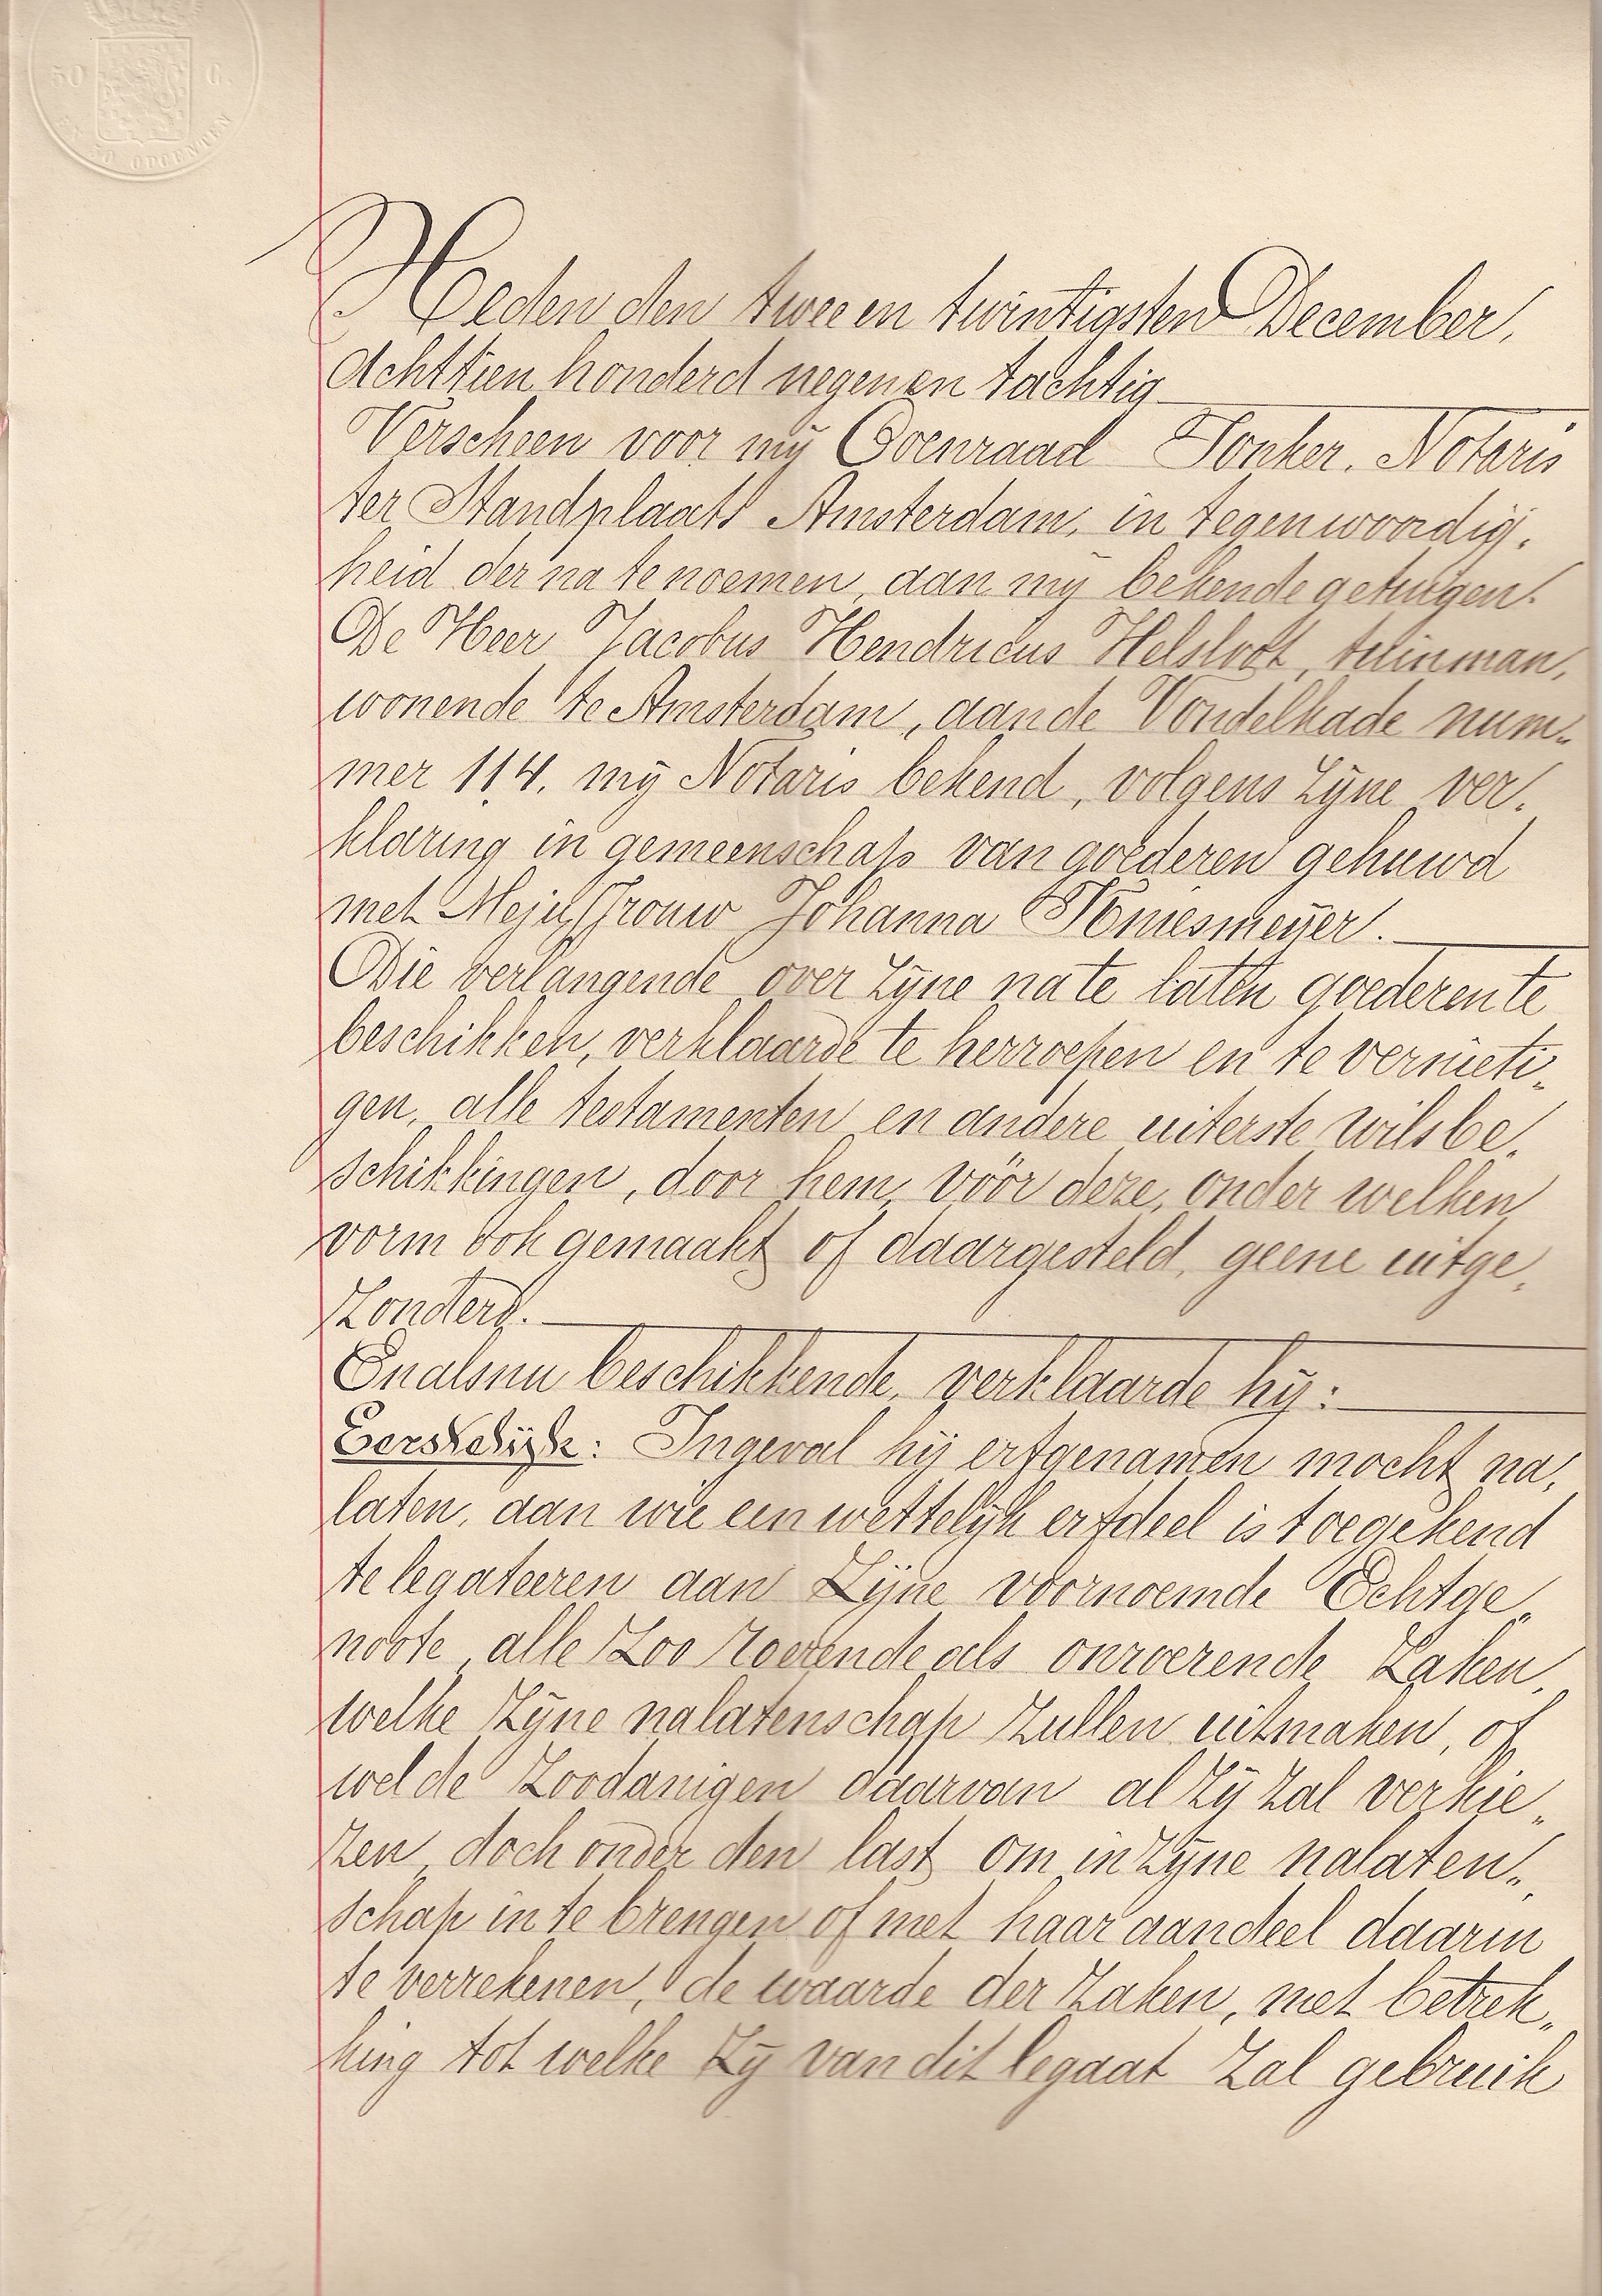 50 C.
50 OPCENTEN
Heden den twee en twintigsten December,
Achttien honderd negen en tachtig
Verscheen voor mij Coenraad Jonker, Notaris
ter Standplaats Amsterdam, in tegenwoordig,
heid der na te noemen, aan mij bekende getuigen.
De Heer Jacobus Hendricus Helsloot, tuinman,
wonende te Amsterdam, aan de Vondelkade num„
mer 114, mij Notaris bekend, volgens zijne ver,
klaring in gemeenschap van goederen gehuwd
met Mejuffrouw Johanna
Die verlangende over zijne na te laten goederen te
beschikken, verklaarde te herroepen en te vernieti„
gen, alle testamenten en andere uiterste wilsbe,
schikkingen, door hem, vóór deze, onder welken
vorm ook gemaakt of daargesteld, geene uitge,
zonderd.
En alsnu beschikkende, verklaarde hij:
Eerstelijk: Ingeval hij erfgenamen mocht na,
laten, aan wie een wettelijk erfdeel is toegekend
te legateeren aan Zijne voornoemde Echtge„
noote, alle zoo roerende als onroerende zaken,
welke zijne nalatenschap zullen uitmaken, of
wel de zoodanigen daarvan al zij zal verkie„
zen, doch onder den last om in zijne nalaten„
schap in te brengen of met haar aandeel daarin
te verrekenen, de waarde der zaken, met betrek„
king tot welke zij van dit legaat zal gebruik